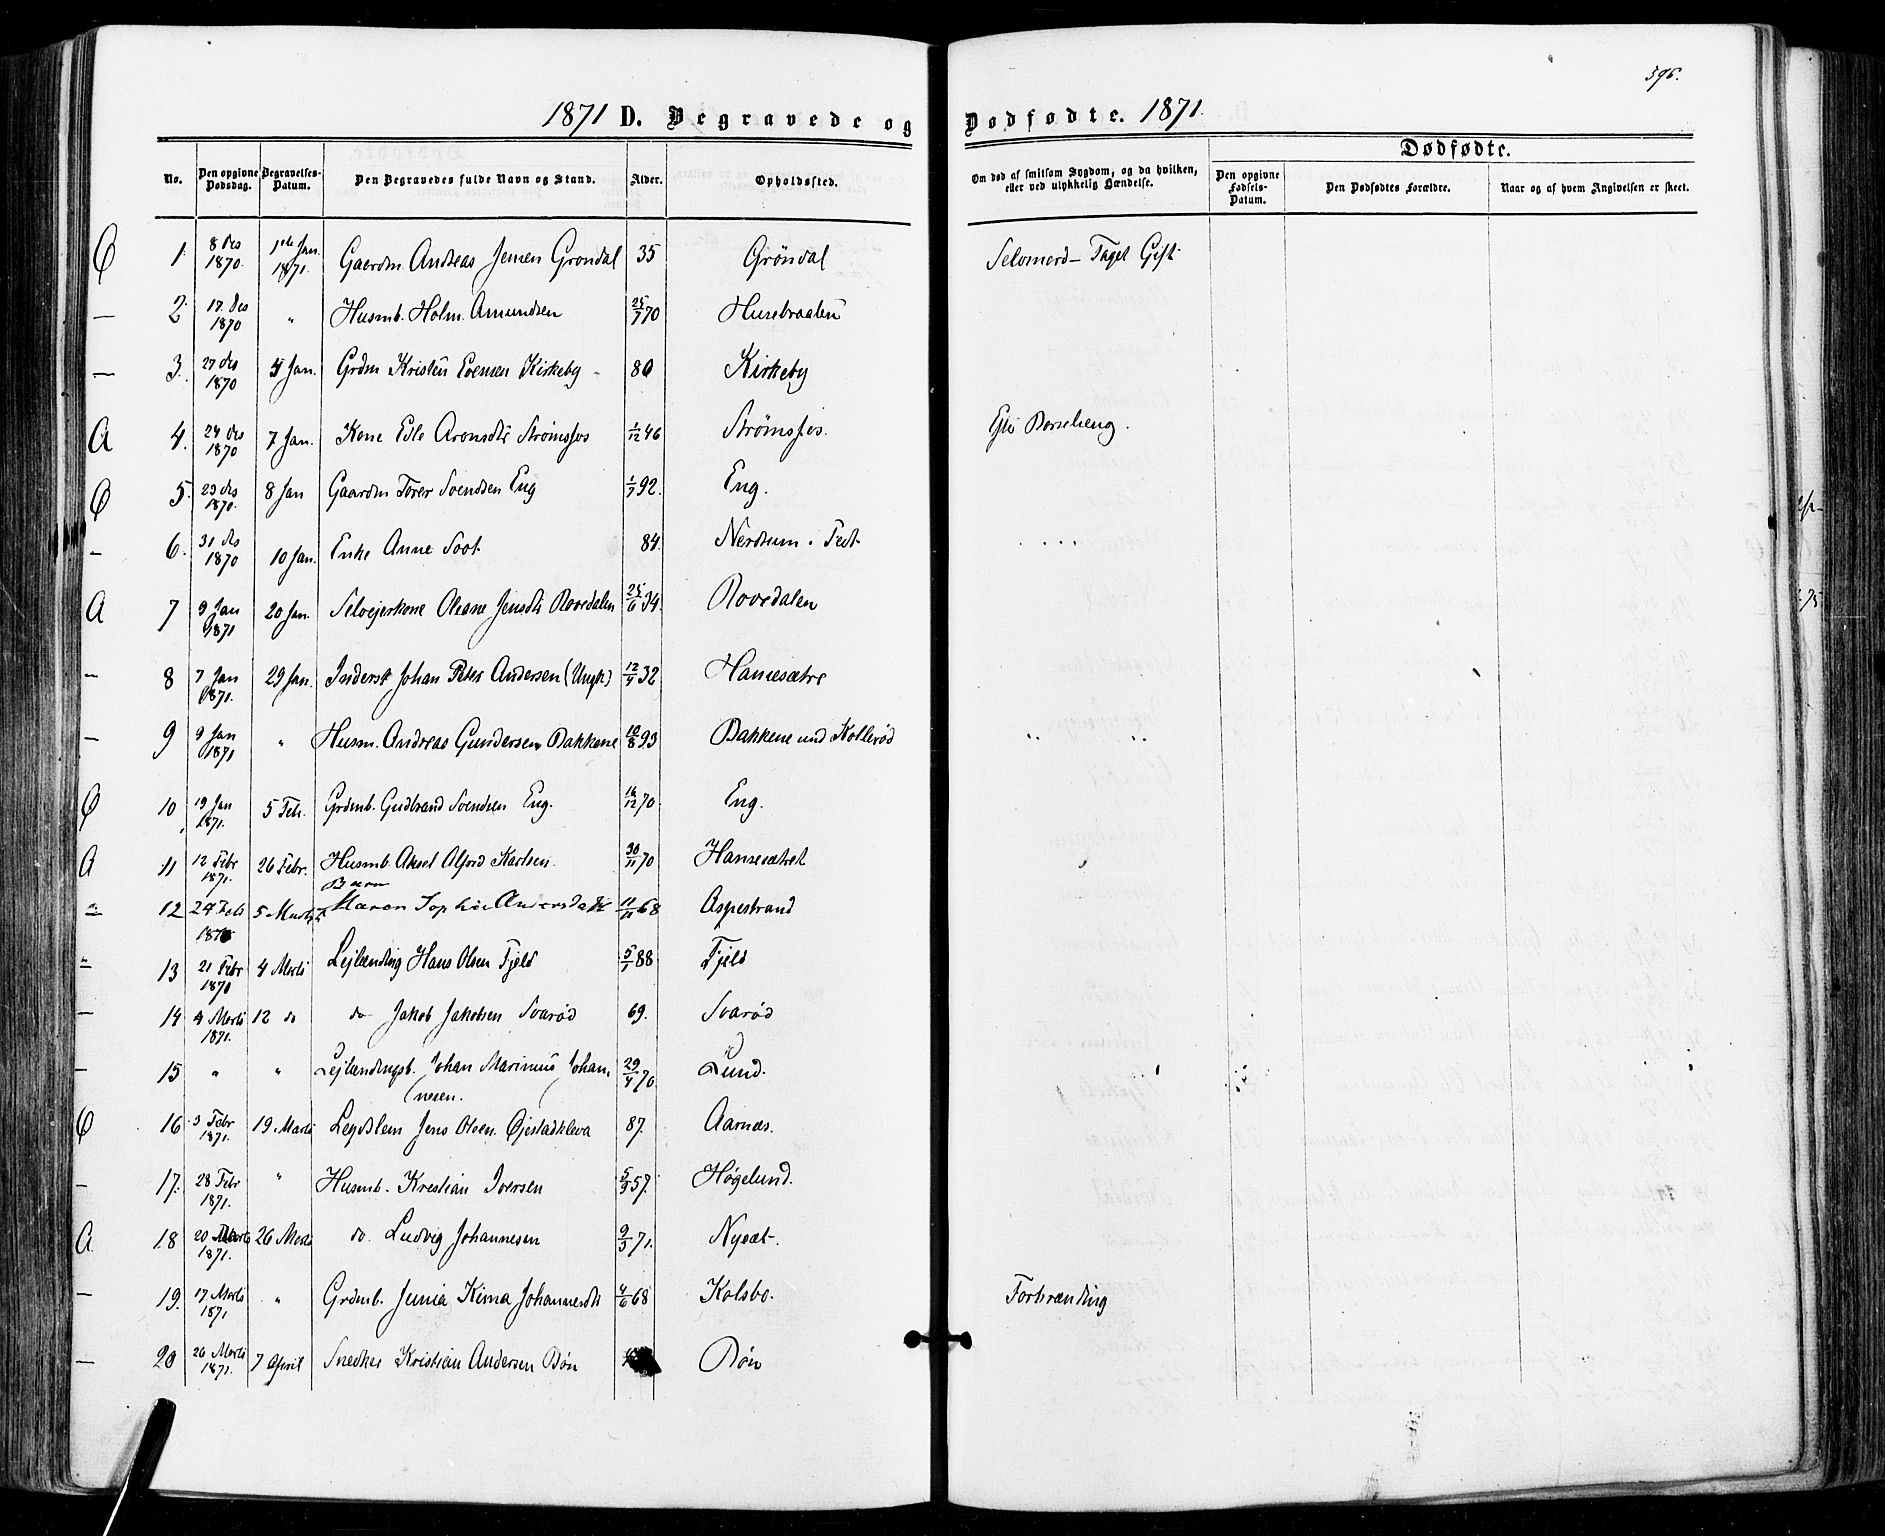 596.
1871 D. Begravede og Dødfødte. 1871.
No. Den opgivne Dødsdag. Begravelses-Datum. Den Begravedes fulde Navn og Stand. Alder. Opholdssted. Om død af smitsom Sygdom, og da hvilken, eller ved ulykkelig Hændelse. Dødfødte.
Den opgivne Fødsels-Datum. Den Dødfødtes Forældre. Naar og af hvem Angivelsen er skeet.
1. 8 Des 1870. 1ste Jan. 1871. Gaardm. Andreas Jensen Grøndal 35 Grøndal Selvmord - Taget Gift.
2. 17. Des 1870 " Husmb. Holm. Amundsen 25/7 70 Husebraaten
3. 27 Des 1870 4 Jan. Grdm Kristen Evensen Kirkeby 80 Kirkeby
A 4. 24 Des 1870 7 Jan. Kone Edle Aronsdtr Strømsfos 1/12 46 Strømsfos. Efter Barseleng.
5. 23 Des 1870. 8 Jan Gaardm Torer Svendsen Eng 1/7 92. Eng.
6. 31 Des 1870 10 Jan. Enke Anne Soot 84. Nerdsum i Fet
A 7 9 Jan 1871 20 Jan. Selvejerkone Oleane Jensdtr Rovedalen 25/6 34. Rovedalen
8 7 Jan 1871. 29 Jan. Inderst Johan Peter Andersen (Ungk.) 12/9 32 Hansesætre
9 9 Jan 1871 " Husm. Andreas Gundersen Bakkene 10/8 93 Bakkene und Kollerød
10 19 Jan 1871. 5 Feb. Grdmb. Gudbrand Svendsen Eng. 16/12 70 Eng.
A 11 12 Febr 1871. 26 Febr. Husmb. Aksel Alfred Karlsen 30/11 70 Hansesætret
12 24 Feb 187 5 Marts Barn Maren Sophie Andersdatter 11/11 68 Aspestrand
13 21 Febr 1870 4 Marts Lejlænding Hans Olsen Fjeld 5/1 88 Fjeld
14 4 Marts 1871. 12 do do Jakob Jakobsen Svarød 69. Svarød
15 " " Lejlændingsb. Johan Marinius Johannesen. 29/4 70 Lund.
16 3 Febr 1871. 19 Marts Legdslem Jens Olsen Øjestadkleva 87. Aarnæs.
17. 28 Febr 1871. " Husmb. Kristian Iversen 5/9 57. Høgelund.
A 18 20 Marts 1871. 26 Marts do. Ludvig Johannesen 9/3 71. Nysæt.
19. 17 Marts 1871 " Grdmb. Junia Kima Johannesdtr 4/6 68 Kolsbo. Forbrænding
20 26 Marts 1871. 7 April Snedker Kristian Andersen Bøn Bøn